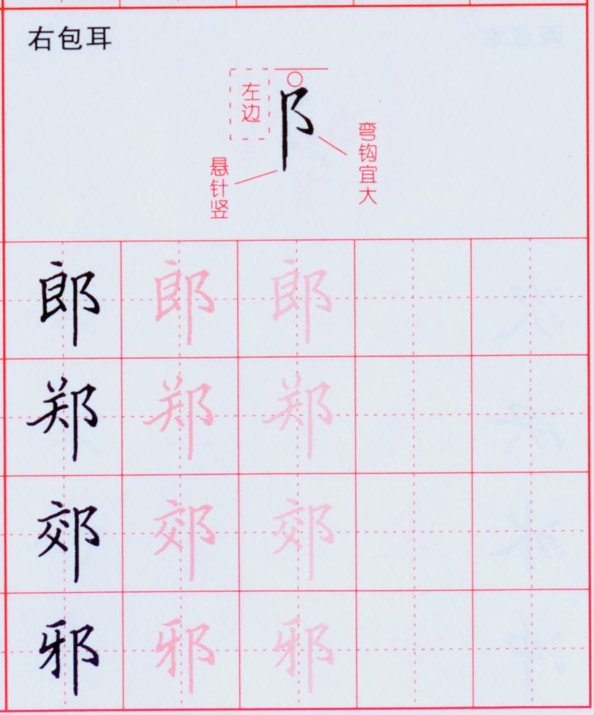 右包耳
左边
阝
弯钩宜大
悬针竖
郎 郎 郎
郑 郑 郑
郊 郊 郊
邪 邪 邪